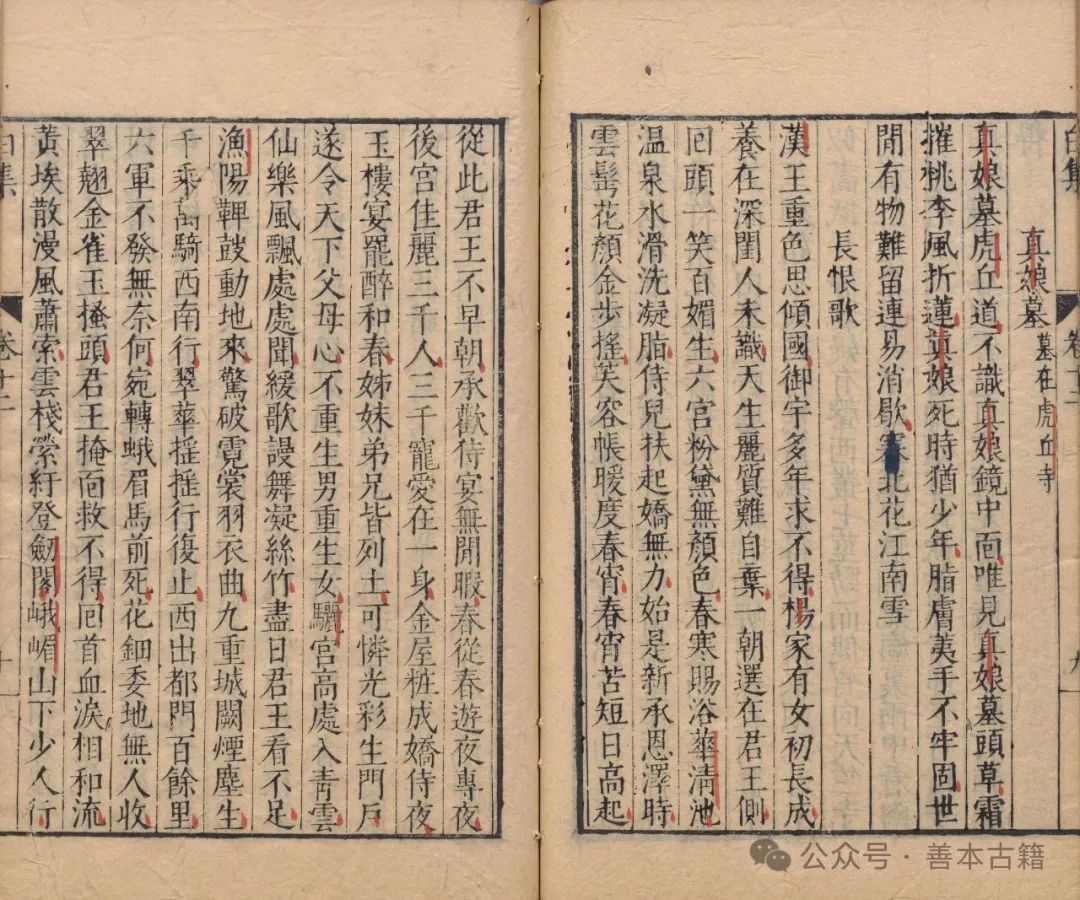 白集
卷十二
九
真娘墓 墓在虎丘寺
真娘墓虎丘道不識真娘鏡中面唯見真娘墓頭草霜
摧桃李風折蓮真娘死時猶少年脂膚荑手不牢固世
間有物難留連易消歇塞北花江南雪
長恨歌
漢王重色思傾國御宇多年求不得楊家有女初長成
養在深閨人未識天生麗質難自棄一朝選在君王側
囘頭一笑百媚生六宮粉黛無顏色春寒賜浴華清池
温泉水滑洗凝脂侍兒扶起嬌無力始是新承恩澤時
雲髩花顏金步搖芙容帳暖度春宵春宵苦短日高起
從此君王不早朝承歡侍宴無閒暇春從春遊夜專夜
後宮佳麗三千人三千寵愛在一身金屋粧成嬌侍夜
玉樓宴罷醉和春姊妹弟兄皆列土可憐光彩生門戶
遂令天下父母心不重生男重生女驪宮高處入青雲
仙樂風飄處處聞緩歌謾舞凝絲竹盡日君王看不足
漁陽鞞鼓動地來驚破霓裳羽衣曲九重城闕煙塵生
千乘萬騎西南行翠華揺揺行復止西出都門百餘里
六軍不發無奈何宛轉蛾眉馬前死花鈿委地無人收
翠翹金雀玉搔頭君王掩面救不得囘首血淚相和流
黃埃散漫風蕭索雲棧縈紆登劒閣峨嵋山下少人行
白集
卷十二
公众号·善本古籍